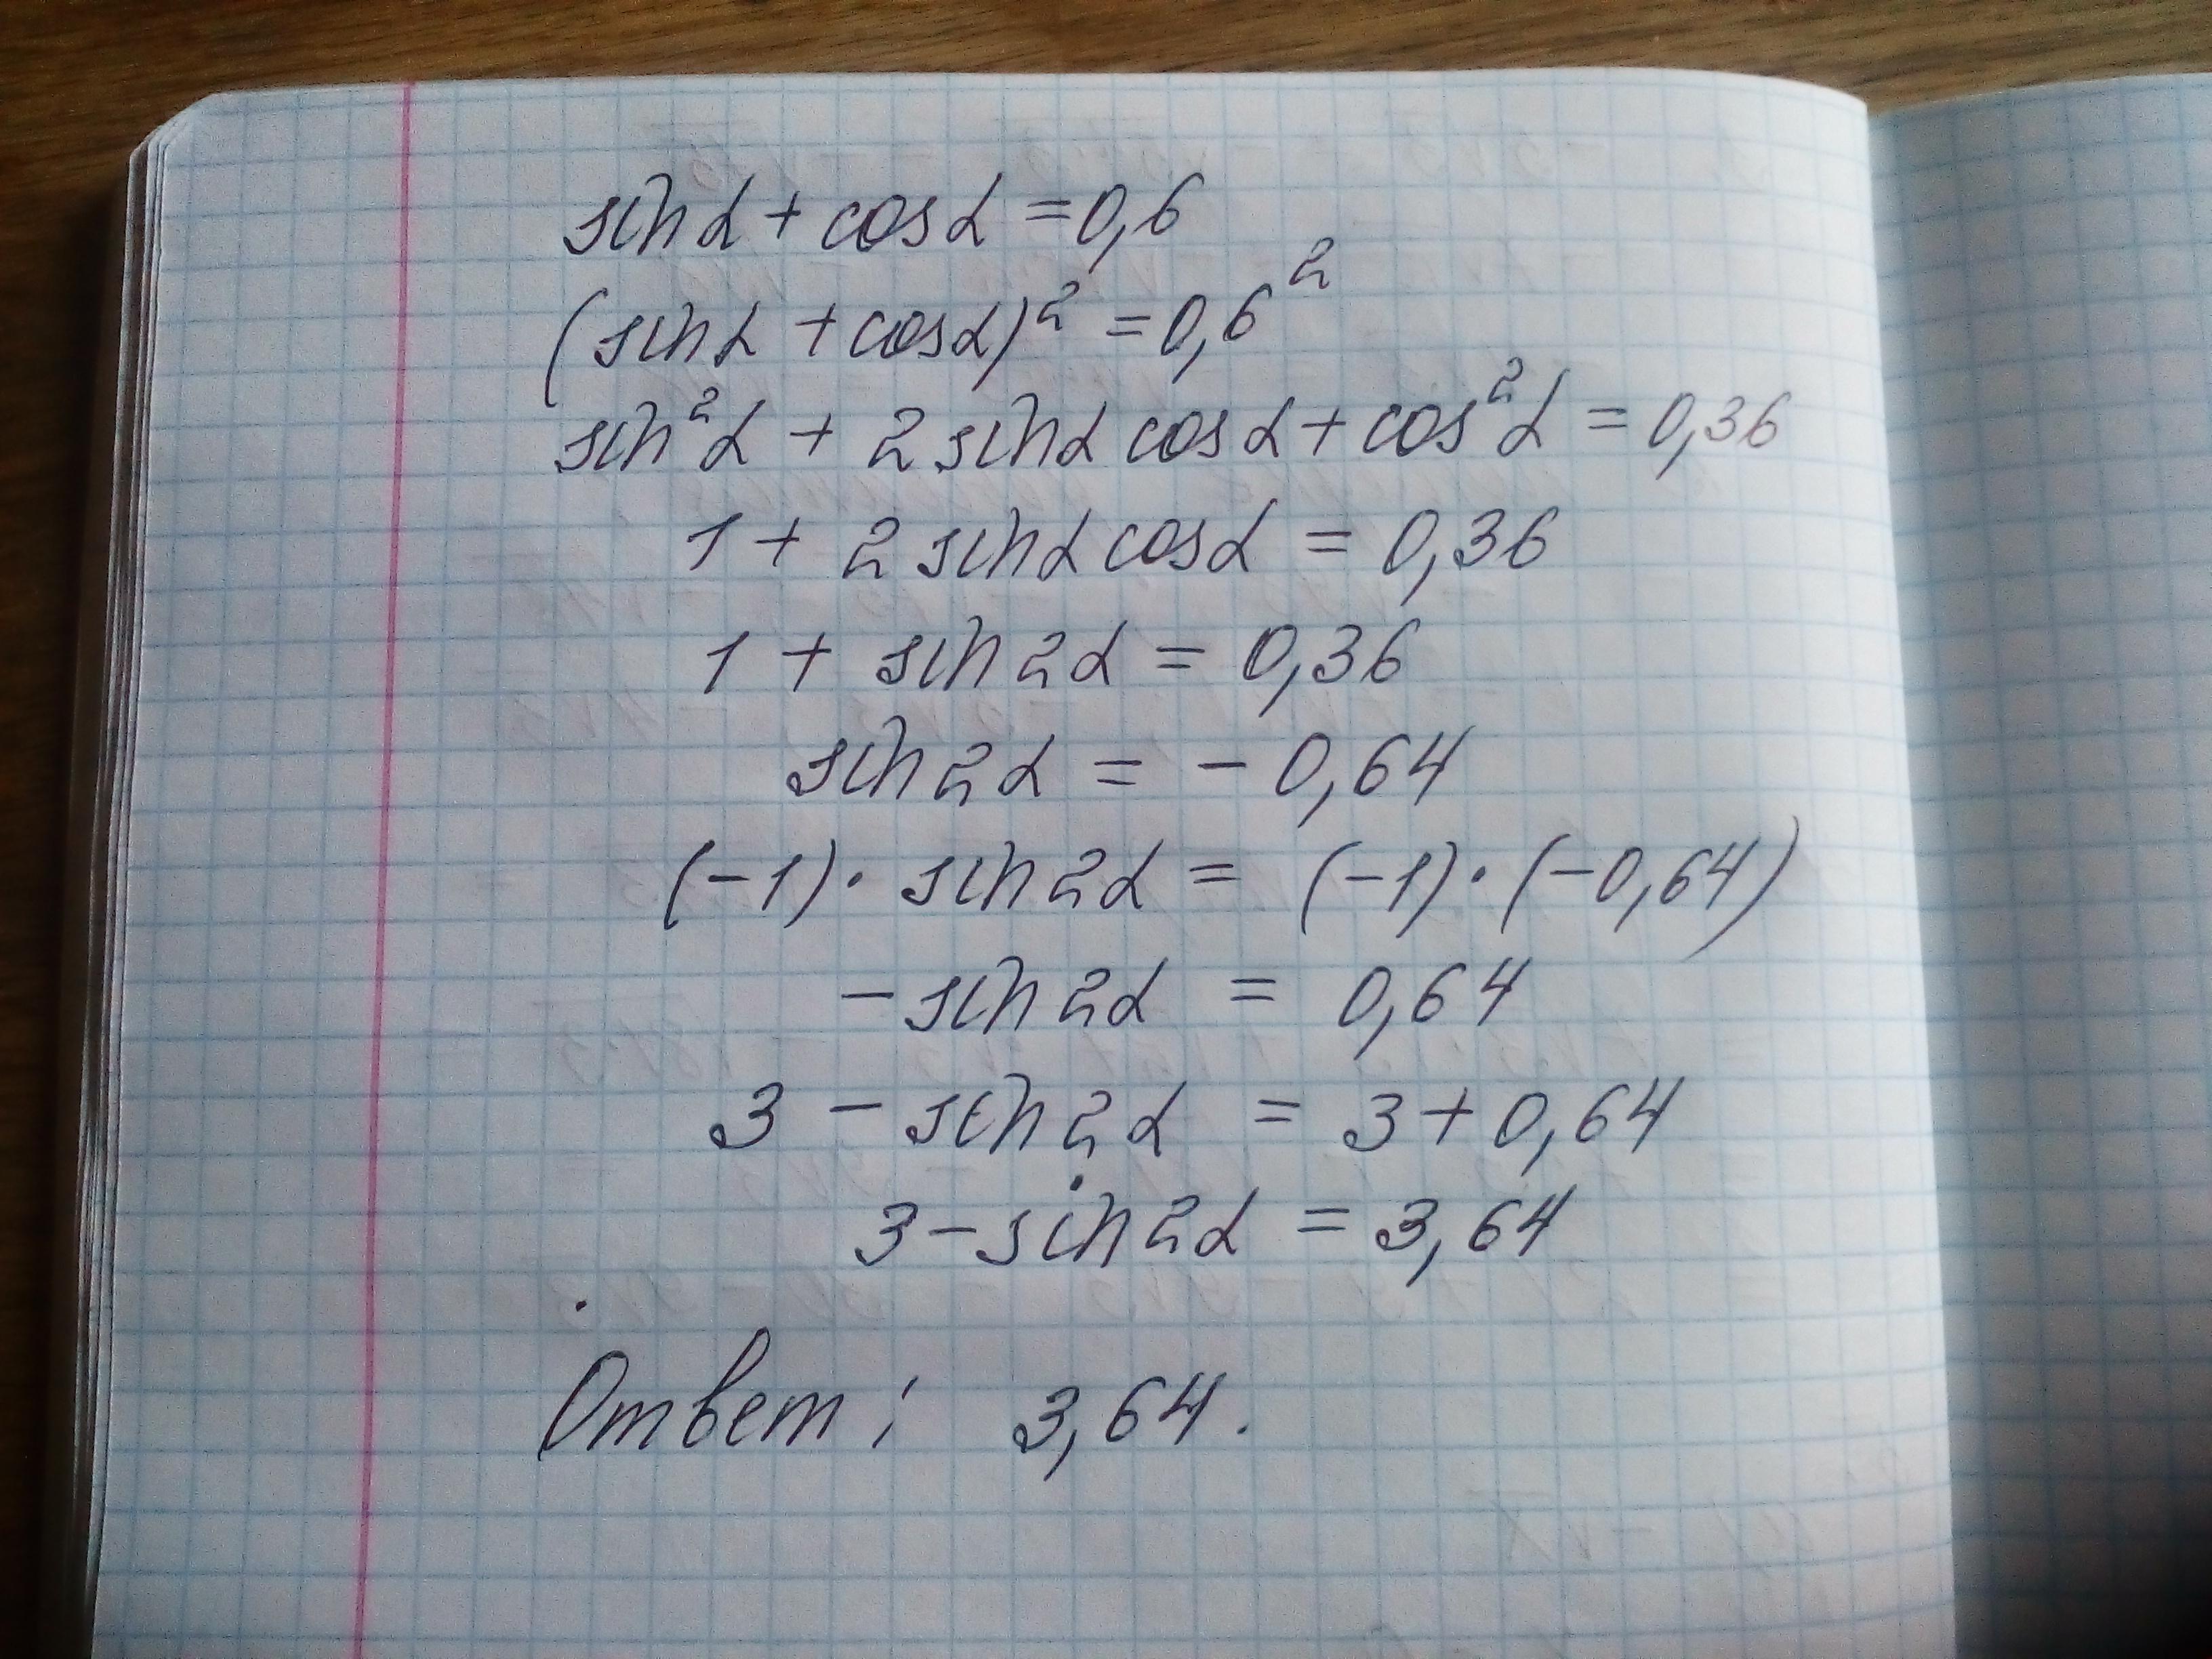 sinα + cosα = 0,6
(sinα + cosα)² = 0,6²
sin²α + 2 sinα cosα + cos²α = 0,36
1 + 2 sinα cosα = 0,36
1 + sin2α = 0,36
sin2α = - 0,64
(-1)· sin2α = (-1)·(-0,64)
- sin2α = 0,64
3 - sin2α = 3 + 0,64
3 - sin2α = 3,64
Ответ: 3,64.